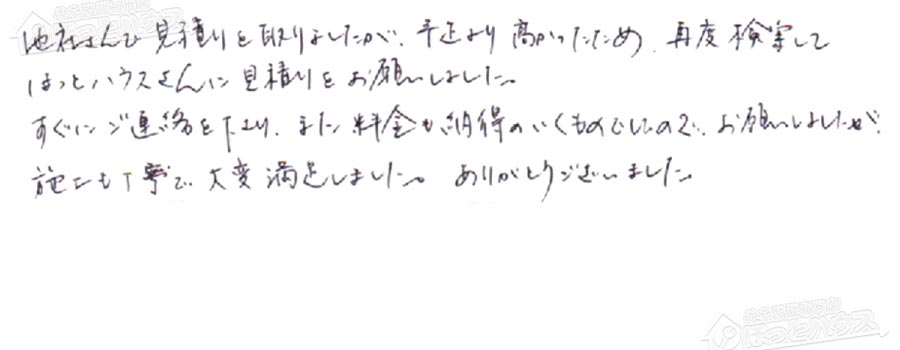 他社さんで見積りを取りましたが、予定より高かったため、再度検索して
ほっとハウスさんに見積りをお願いしました。
すぐにご連絡を下さり、また料金も納得のいくものでしたので、お願いしましたが、
施工も丁寧で、大変満足しました。ありがとうございました。
ほっとハウス